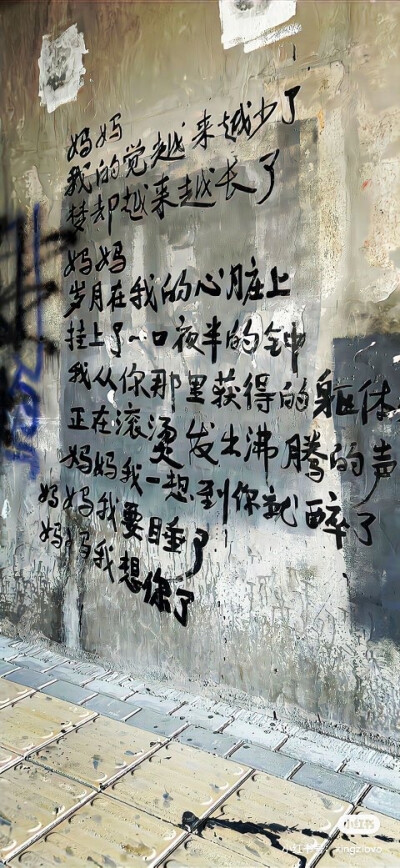 妈妈
我的觉越来越少了
梦却越来越长了
妈妈
岁月在我的心脏上
挂上了一口夜半的钟
我从你那里获得的躯体
正在滚烫发出沸腾的声
妈妈我一想到你就醉了
妈妈我要睡了
妈妈我想你了
小红书
小红书号: